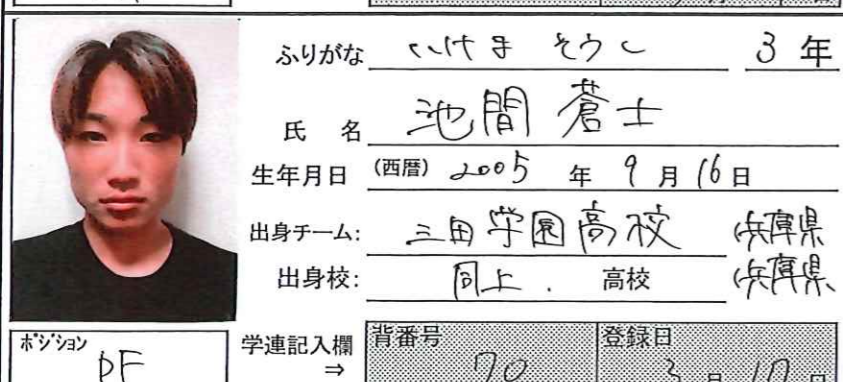 ふりがな いけま そうし 3 年
氏 名 池間 蒼士
生年月日 (西暦) 2005 年 9 月 16 日
出身チーム: 三田学園高校 兵庫県
出身校: 同上. 高校 兵庫県
ポジション 学連記入欄 背番号 登録日
DF ⇒ 70 3 月 17 日